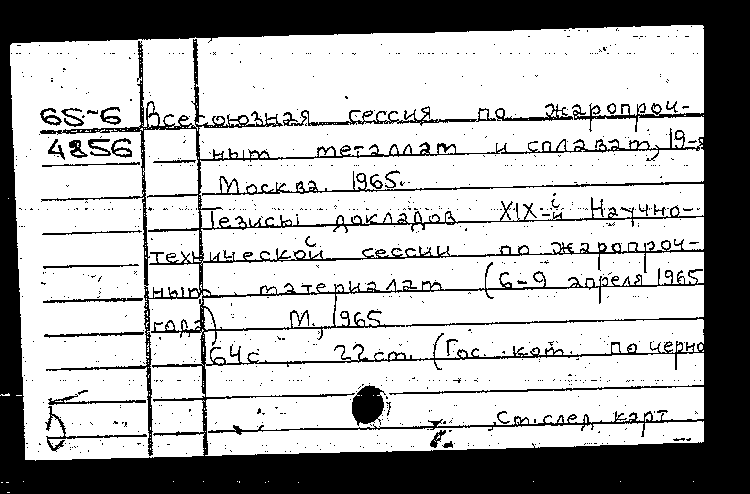 65-6 Всесоюзная сессия по жаропроч-
4856 ным металлам и сплавам, 19-я
Москва. 1965.
Тезисы докладов XIX-й Научно-
технической сессии по жаропроч-
ным материалам (6-9 апреля 1965
года) М., 1965
64с. 22см. (Гос. ком. по черно
Б
См. след. карт